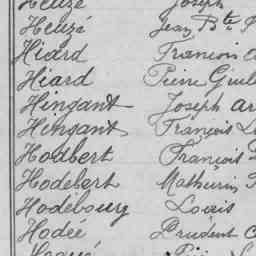 Heuzé Joseph
Heuzé Jean Bte
Hiard François
Hiard Pierre
Hinzant Joseph
Hinzant François
Hodbert François
Hodebert Mathurin
Hodébourg Louis
Hodeé Prudent